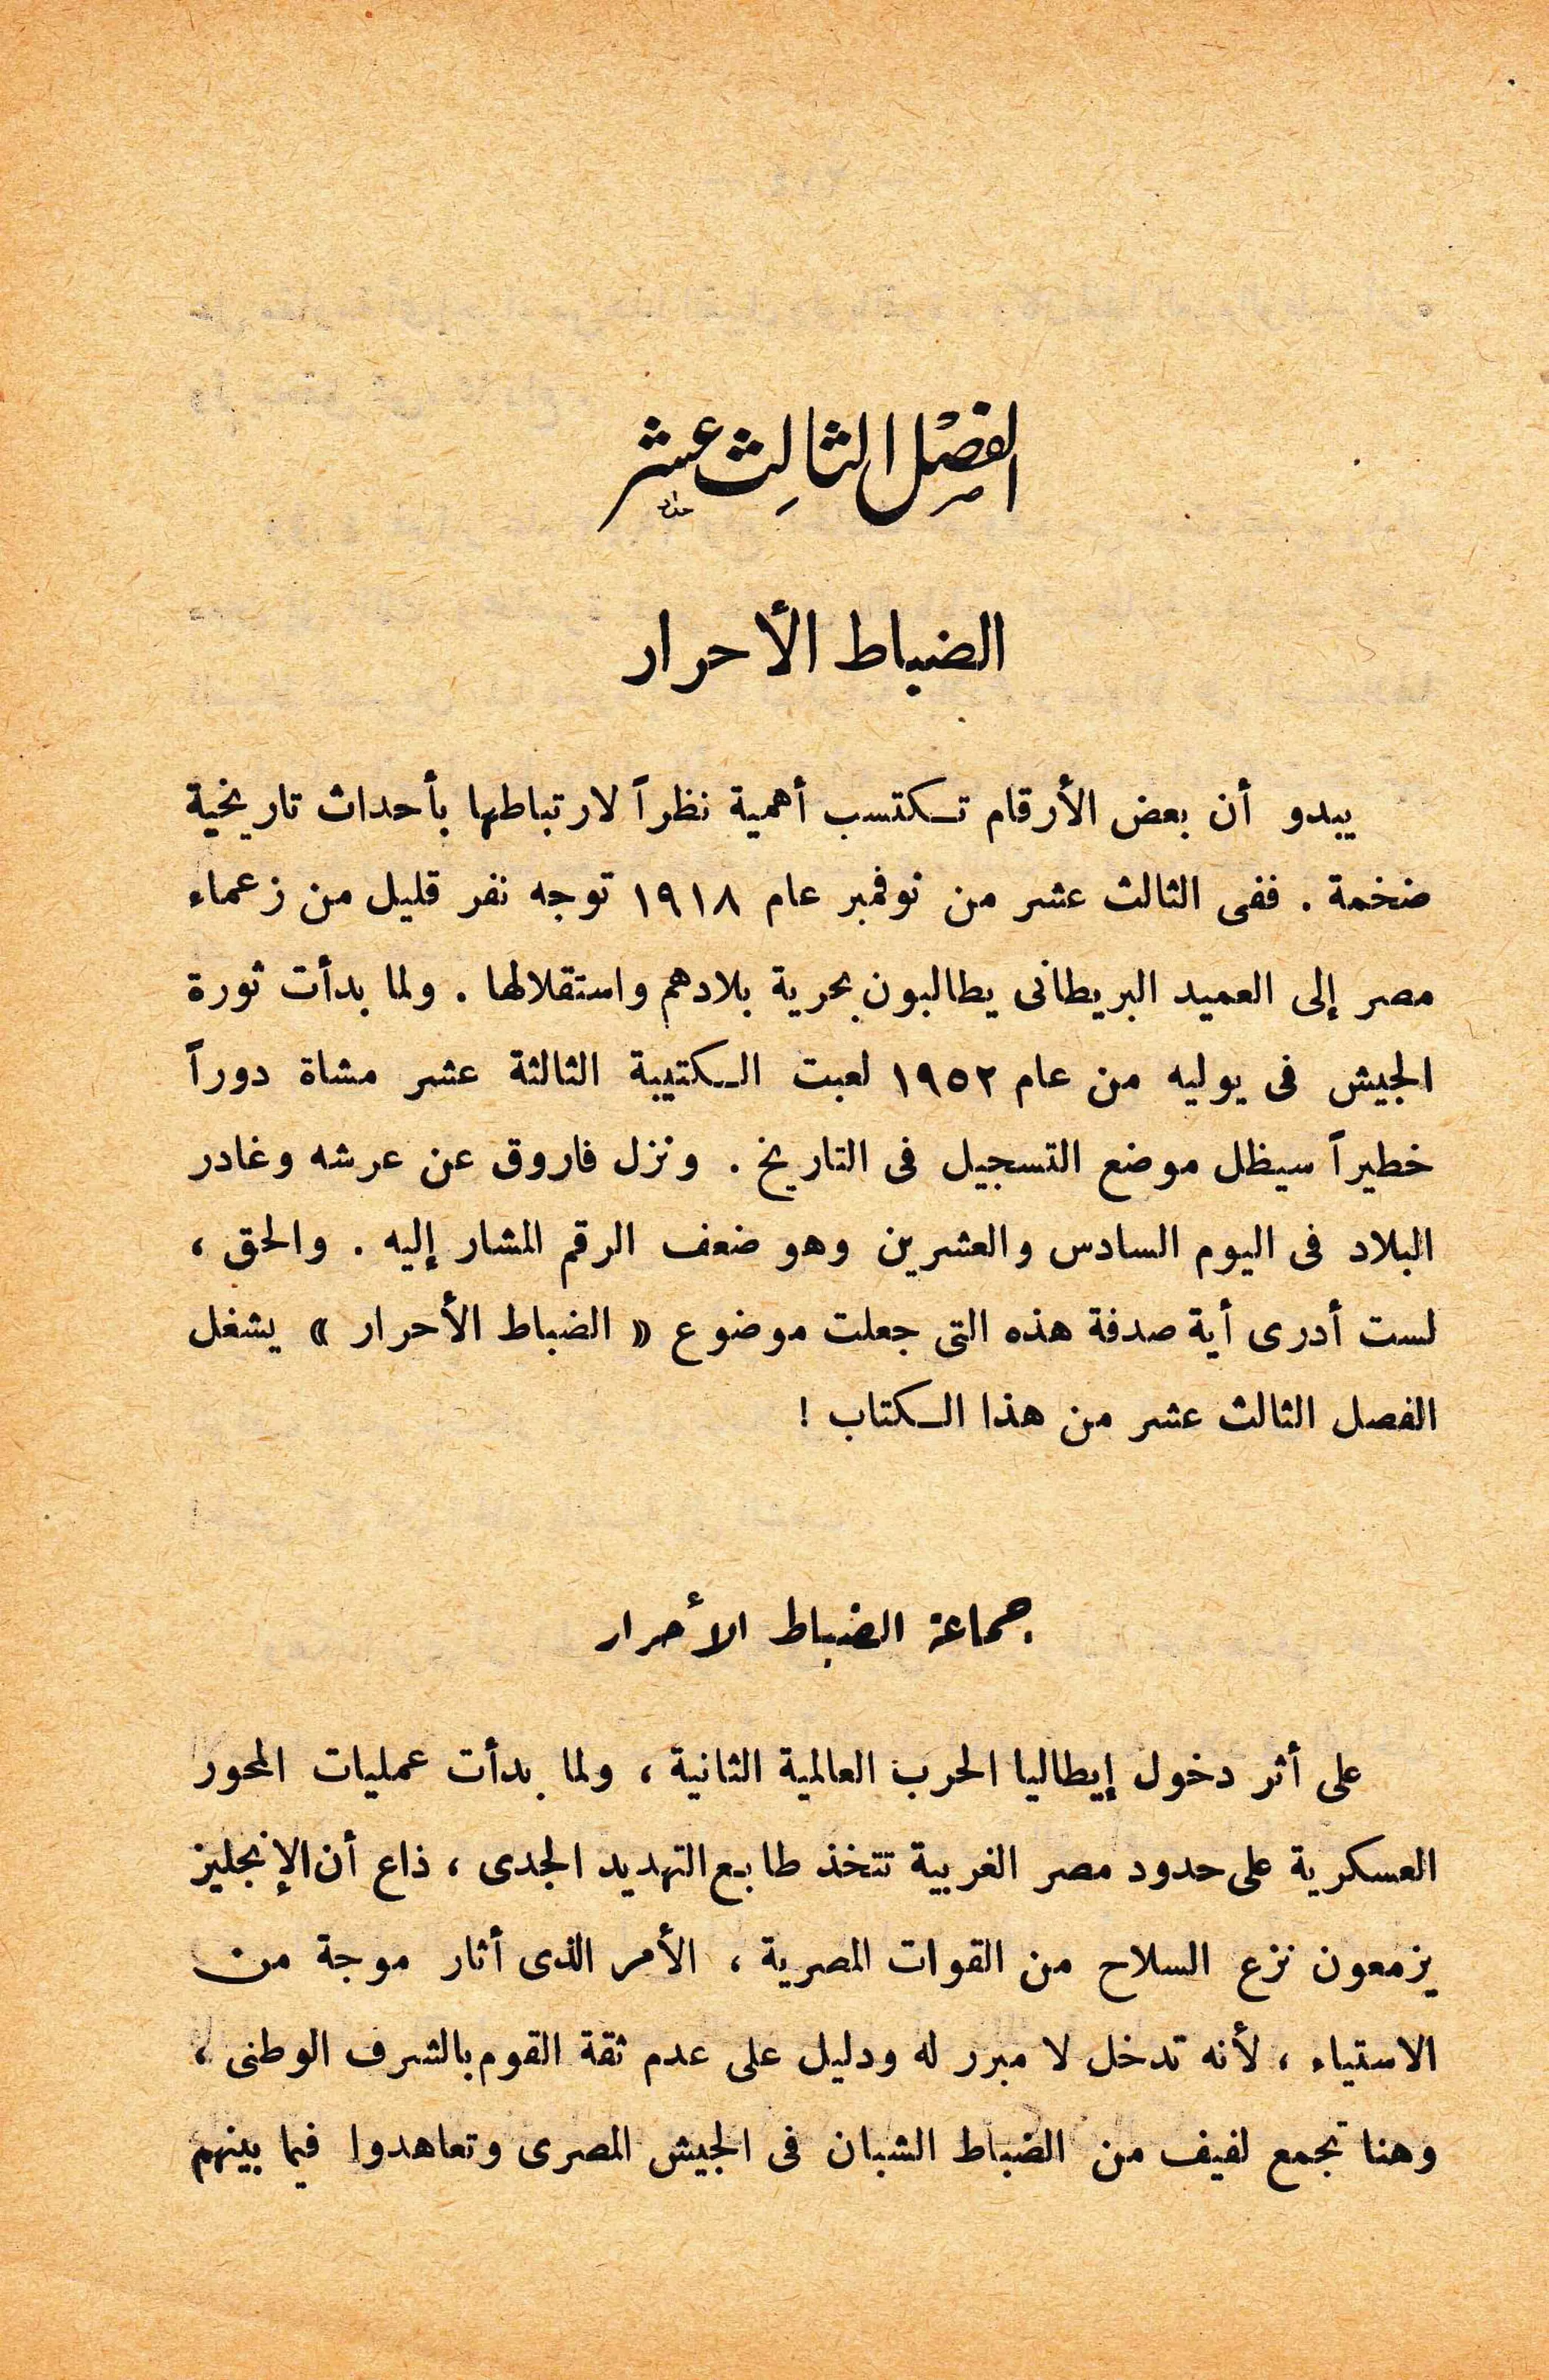 الفصل الثالث عشر
الضباط الأحرار
يبدو أن بعض الأرقام تكتسب أهمية نظراً لارتباطها بأحداث تاريخية
ضخمة . ففى الثالث عشر من نوفمبر عام ١٩١٨ توجه نفر قليل من زعماء
مصر إلى العميد البريطانى يطالبون بحرية بلادهم واستقلالها . ولما بدأت ثورة
الجيش فى يوليه من عام ١٩٥٢ لعبت الكتيبة الثالثة عشر مشاة دوراً
خطيراً سيظل موضع التسجيل فى التاريخ . ونزل فاروق عن عرشه وغادر
البلاد فى اليوم السادس والعشرين وهو ضعف الرقم المشار إليه . والحق ،
لست أدرى أية صدفة هذه التى جعلت موضوع « الضباط الأحرار » يشغل
الفصل الثالث عشر من هذا الكتاب !
جماعة الضباط الأحرار
على أثر دخول إيطاليا الحرب العالمية الثانية ، ولما بدأت عمليات المحور
العسكرية على حدود مصر الغربية تتخذ طابع التهديد الجدى ، ذاع أن الإنجليز
يزمعون نزع السلاح من القوات المصرية ، الأمر الذى أثار موجة من
الاستياء ، لأنه تدخل لا مبرر له ودليل على عدم ثقة القوم بالشرف الوطنى ،
وهنا تجمع لفيف من الضباط الشبان فى الجيش المصرى وتعاهدوا فيما بينهم